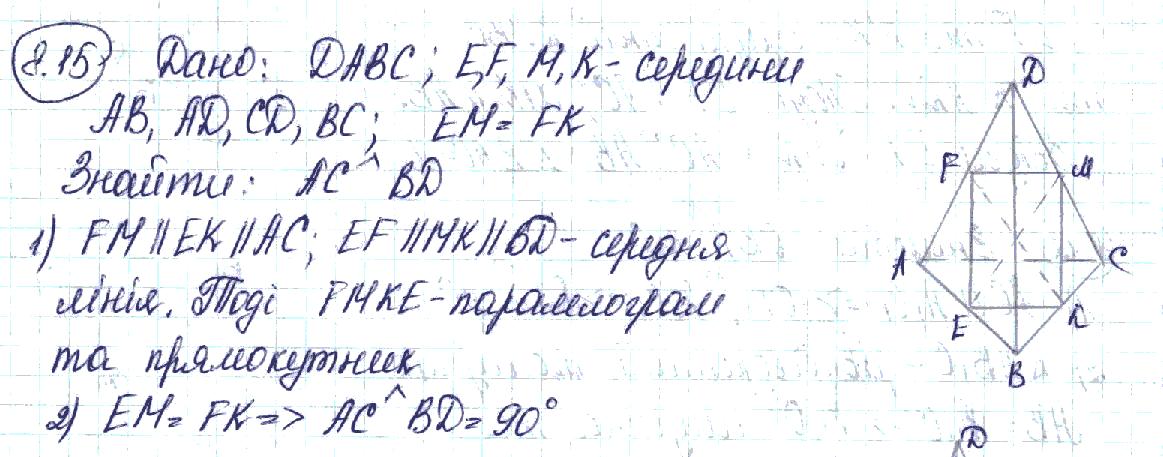 8.15 Дано: DABC; E,F, M, K - середини
AB, AD, CD, BC; EM = FK
Знайти: AC^BD
1) FM || EK || AC; EF || MK || BD - середня
лінія. Тоді FMKE - паралелограм
та прямокутник
2) EM = FK => AC^BD = 90°
D
F M
A C
E K
B
D